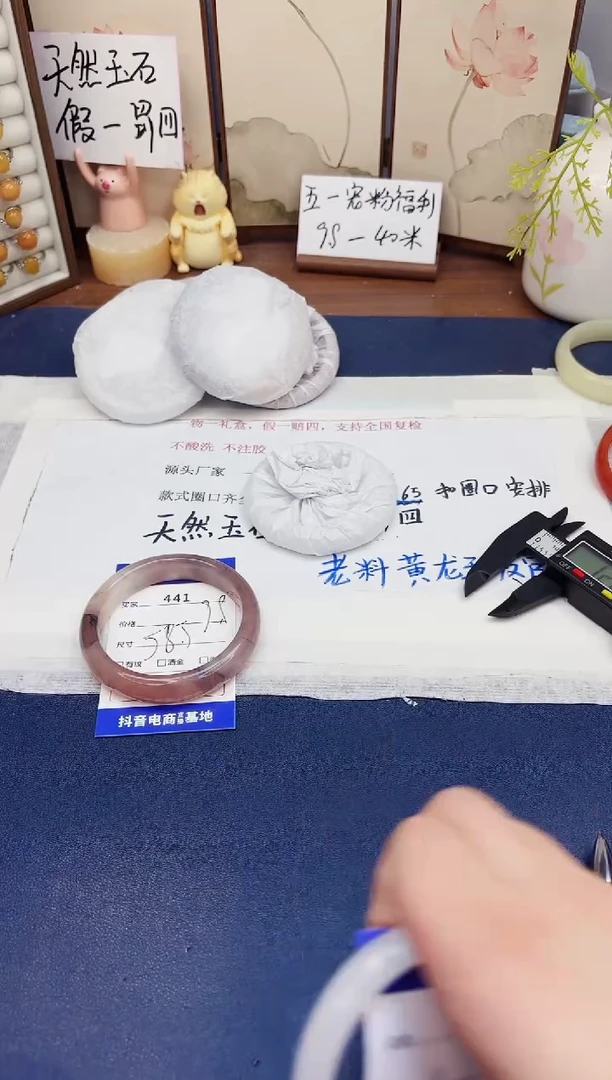 天然玉石
假一罚四
五一宠粉福利
98 — 40米
物一礼盒，假一赔四，支持全国复检
不酸洗 不注胶
源头厂家
65 和圈口安排
款式圈口齐
天然玉
四
老料黄龙玉
441
价格
98
尺寸
585
抖音电商直播基地